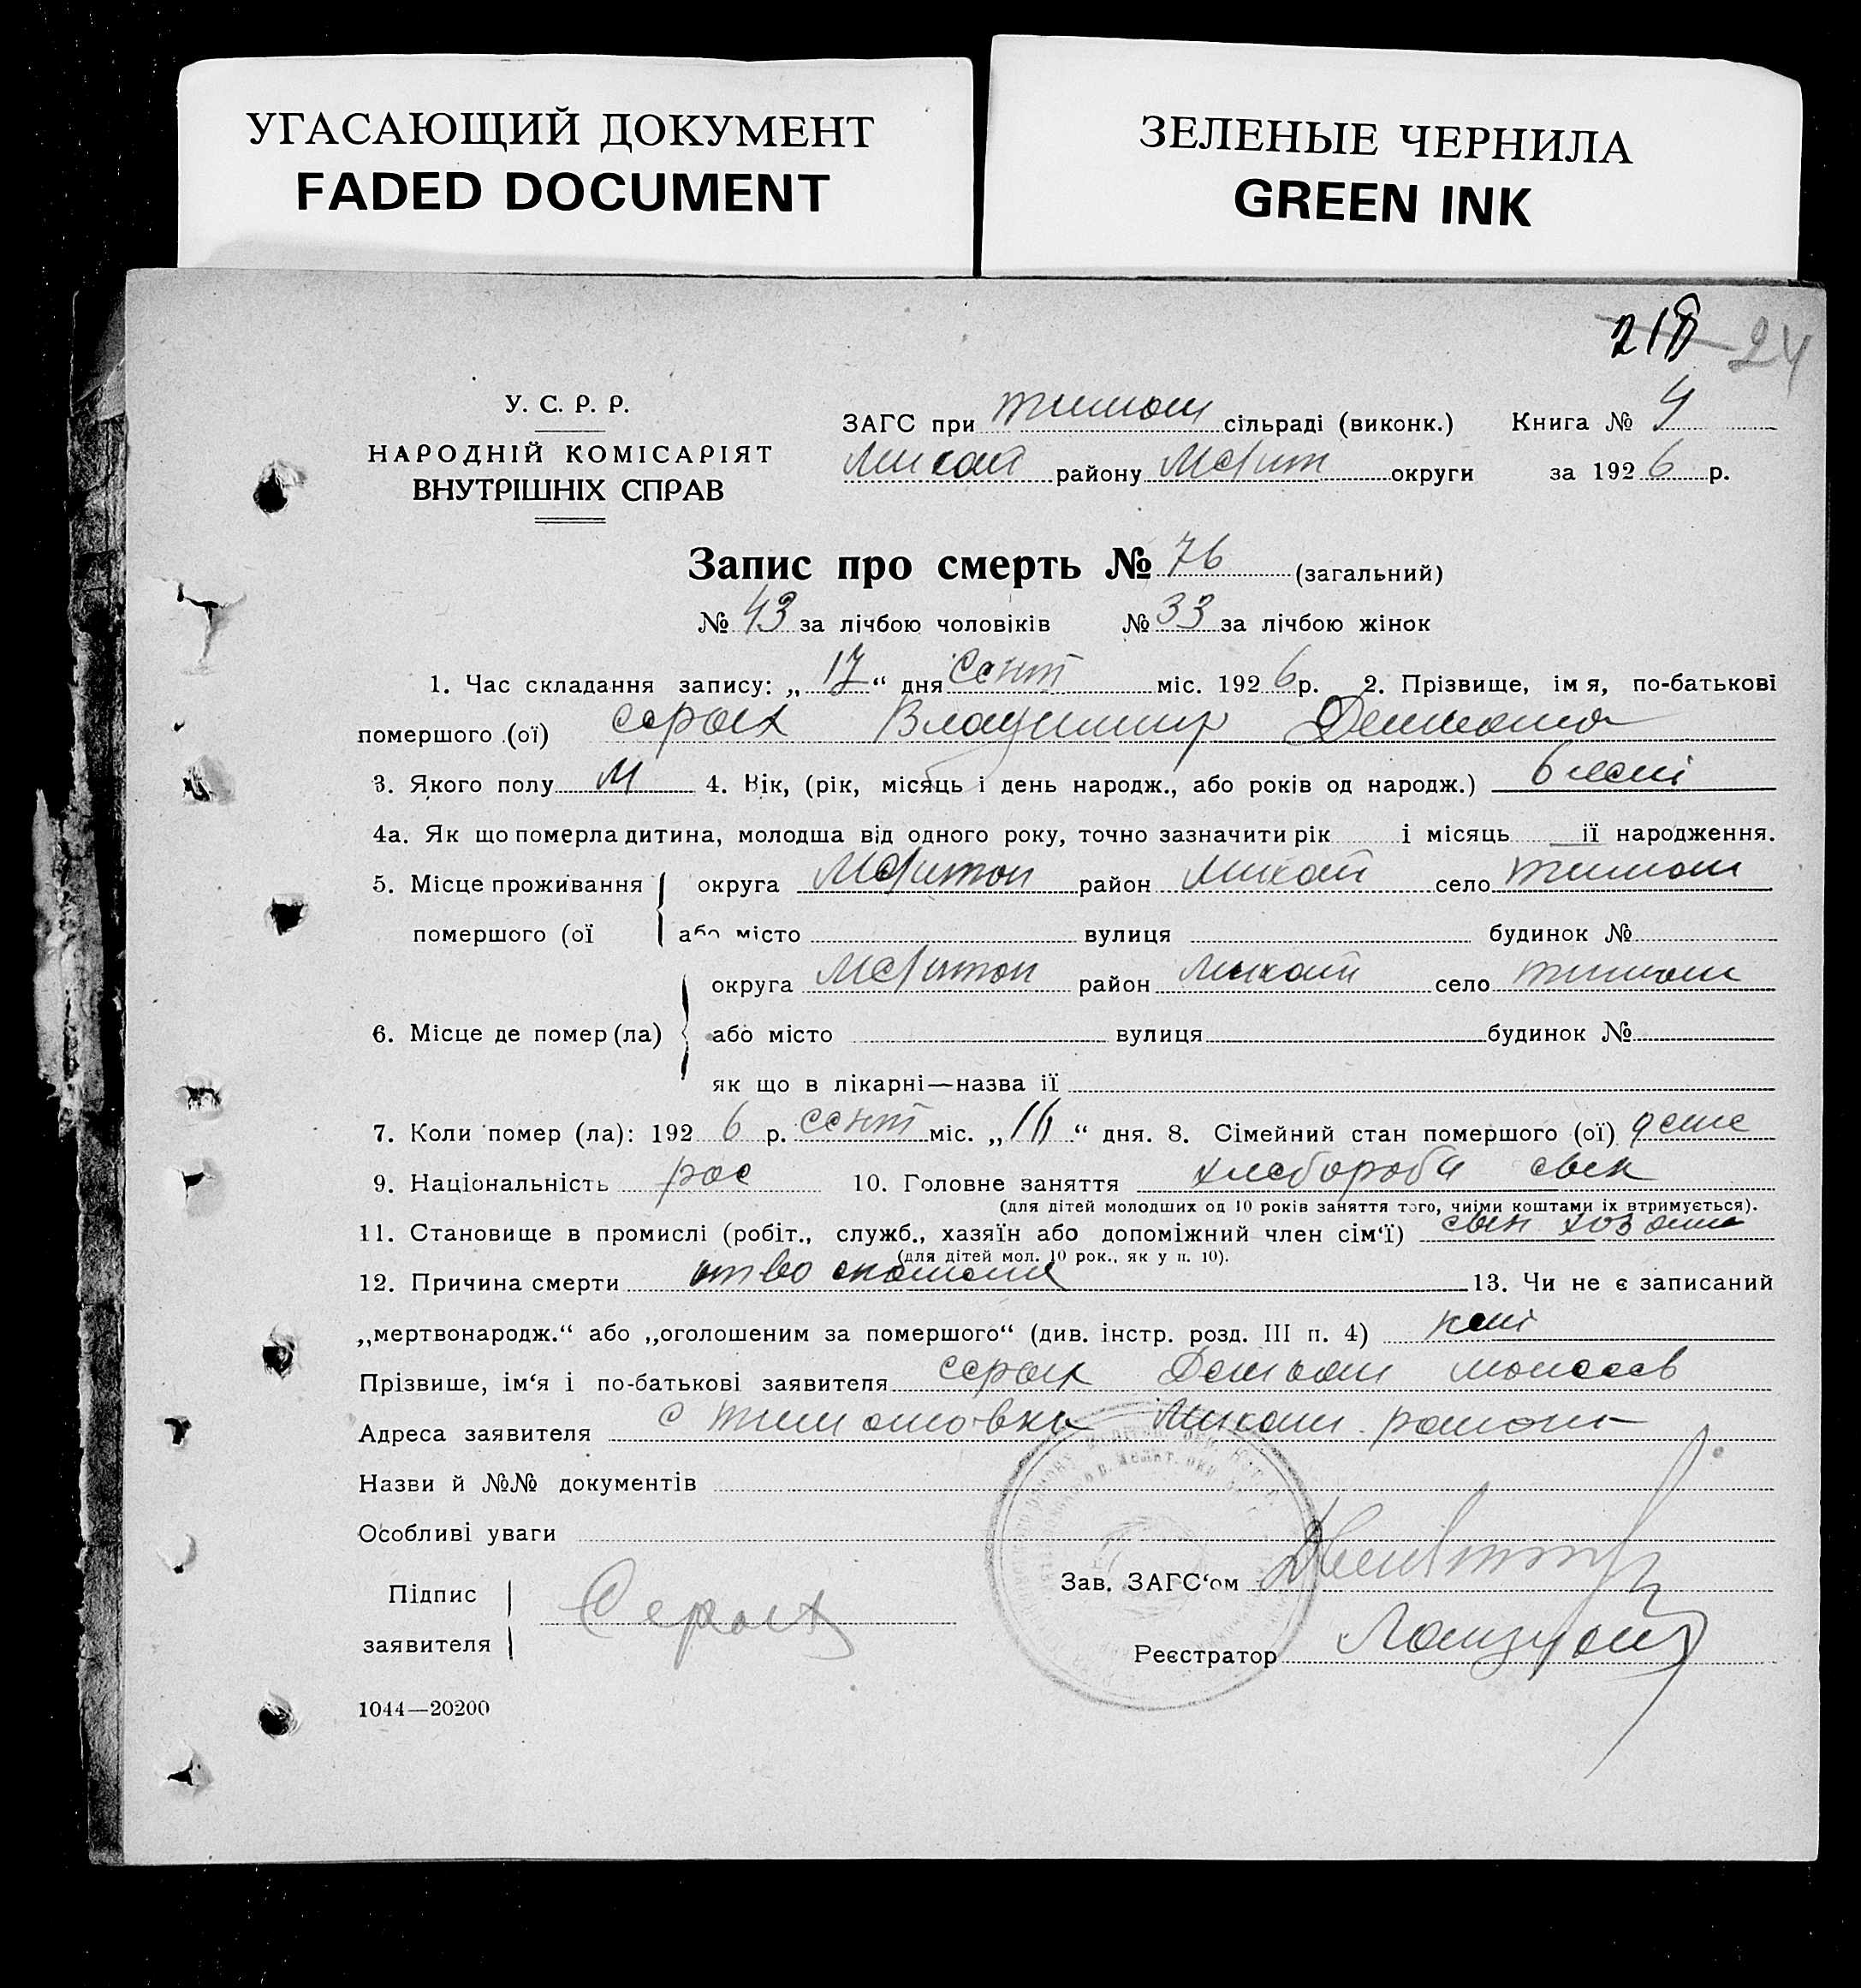 УГАСАЮЩИЙ ДОКУМЕНТ
FADED DOCUMENT
ЗЕЛЕНЫЕ ЧЕРНИЛА
GREEN INK
218 24
У. С. Р. Р.
НАРОДНІЙ КОМІСАРІЯТ
ВНУТРІШНІХ СПРАВ
ЗАГС при тимош сільраді (виконк.) Книга № 4
Михай району Мелит округи за 1926 р.
Запис про смерть № 76 (загальний)
№ 43 за лічбою чоловіків № 33 за лічбою жінок
1. Час складання запису: „17“ дня Сент міс. 1926 р. 2. Прізвище, ім я, по-батькові
помершого (ої) Серых Владимир
3. Якого полу М 4. Вік, (рік, місяць і день народж., або років од народж.) 6
4а. Як що померла дитина, молодша від одного року, точно зазначити рік і місяць її народження.
5. Місце проживання округа Мелитоп район Михай село тимош
помершого (ої або місто вулиця будинок №
округа Мелитоп район Михай село тимош
6. Місце де помер (ла) або місто вулиця будинок №
як що в лікарні—назва її
7. Коли помер (ла): 1926 р. сент міс. „16“ дня. 8. Сімейний стан помершого (ої)
9. Національність рос 10. Головне заняття хлебороба сын
(для дітей молодших од 10 років заняття того, чиїми коштами їх втримується).
11. Становище в промислі (робіт., служб., хазяїн або допоміжний член сім‘ї) сын хозяина
(для дітей мол. 10 рок., як у п. 10).
12. Причина смерти 13. Чи не є записаний
„мертвонародж.“ або „оголошеним за помершого“ (див. інстр. розд. III п. 4)
Прізвише, ім‘я і по-батькові заявителя Серых
Адреса заявителя с тимошовка Михай района
Назви й №№ документів
Особливі уваги
Підпис
заявителя Серых
Зав. ЗАГС‘ом
Реєстратор
1044—20200